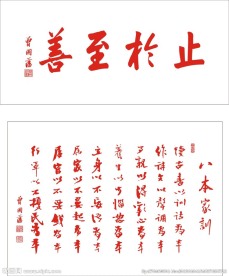 止於至善
曾國藩
八本家訓
讀古書以訓詁為本
作詩文以聲調為本
事親以得歡心為本
養生以少惱怒為本
立身以不妄語為本
居家以不晏起為本
居官以不要錢為本
行軍以不擾民為本
曾國藩